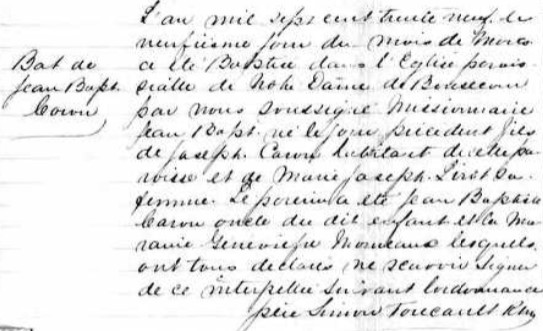 L'an mil sept cent trente neuf le
neufiesme jour du mois de Mars
Bat de
a été Baptisé dans l'Eglise parois-
Jean Bapt.
sialle de Notre Dame de
Caron
par nous soussigné Missionnaire
Jean Bapt. né le jour précédent fils
de Joseph Caron habitant de cette pa-
roisse et de Marie Joseph sa
femme. Le parein a été Jean Baptiste
Caron oncle du dit enfant et la Ma-
raine Geneviefve lesquels
ont tous declarés ne scavoir signer
de ce interpellés suivant l'ordonnance
père Simon Foucault